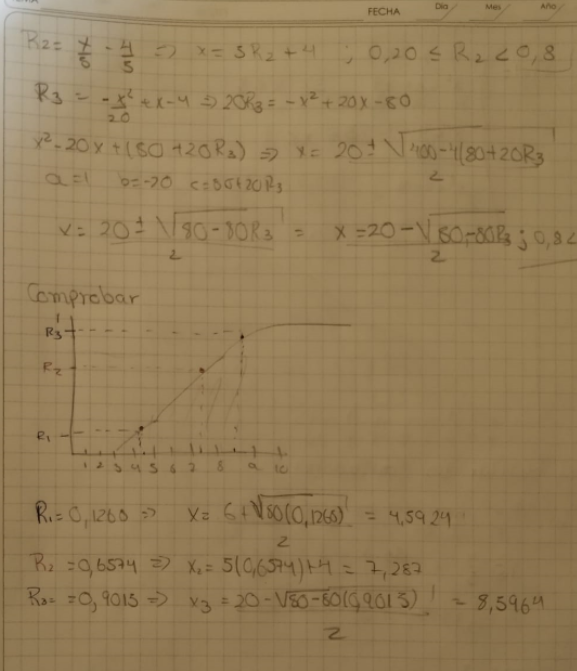 FECHA Dia Mes Año
R2 = x/5 - 4/5 => x = 5R2 + 4 ; 0,20 ≤ R2 < 0,8
R3 = -x²/20 + x - 4 => 20R3 = -x² + 20x - 80
x² - 20x + (80 + 20R3) => x = 20 ± √400 - 4(80 + 20R3 / 2
a = 1 b = -20 c = 80 + 20R3
x = 20 ± √80 - 80R3 / 2 = x = 20 - √80 - 80R3 / 2 ; 0,8 <
Comprobar
1
R3
R2
R1
1 2 3 4 5 6 7 8 9 10
R1 = 0,1265 => x = 6 + √80(0,1265) / 2 = 4,5924
R2 = 0,6574 => x2 = 5(0,6574) + 4 = 7,287
R3 = 0,9015 => x3 = 20 - √80 - 80(0,9015) / 2 = 8,5964